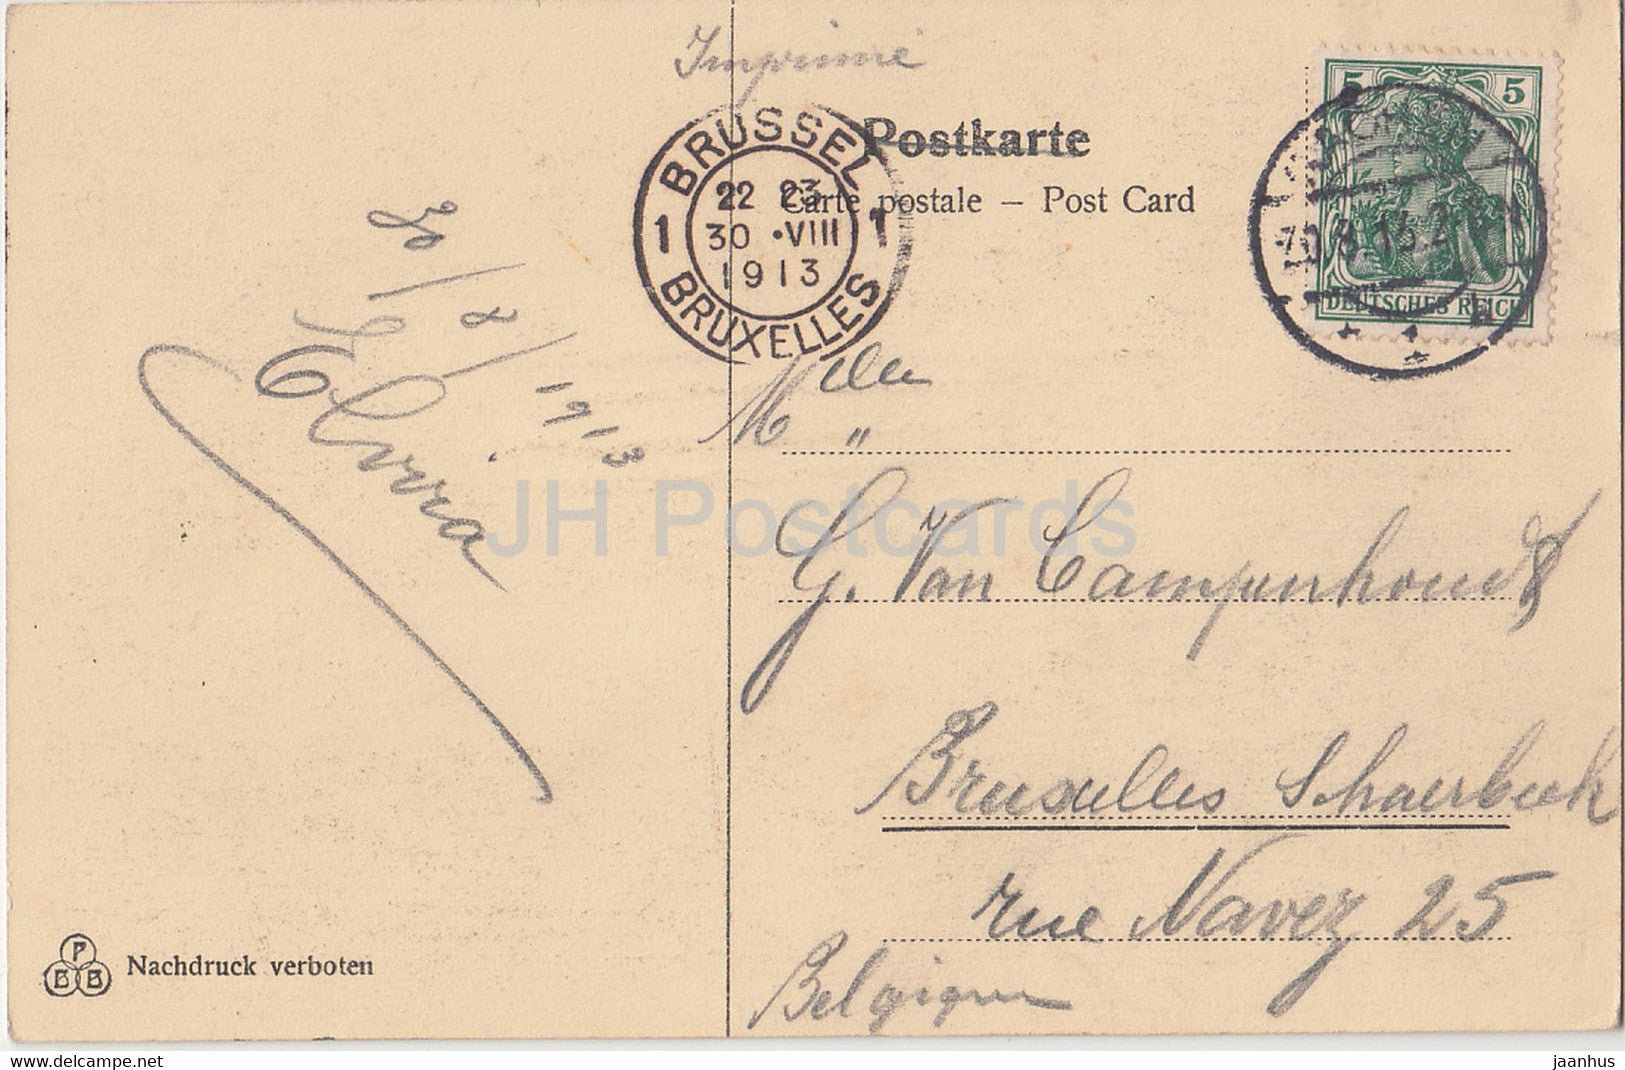 Imprimé
Postkarte
Carte postale – Post Card
BRUSSEL
22 23
1 30 •VIII 1
1913
BRUXELLES
5 5
DEUTSCHES REICH
30/8/1913
Elvira
Melle
G. Van Campenhoudt
Bruxelles Schaerbeek
rue Navez 25
Belgique
PBB
Nachdruck verboten
JH Postcards
https://www.hippostcard.com/store/jaanhus
jaanhus